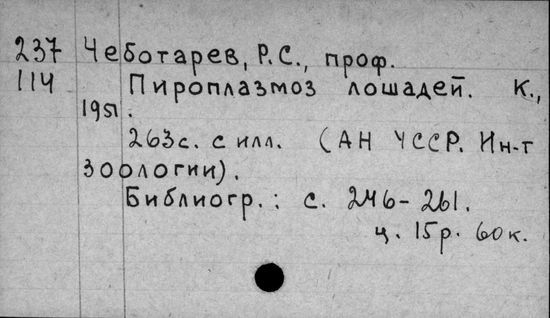 237 Чеботарев, Р.С., проф.
114 Пироплазмоз лошадей. К.,
1951.
263с. с илл. (АН УССР. Ин-т
зоологии).
Библиогр.: с. 246-261.
ц. 15р. 60к.